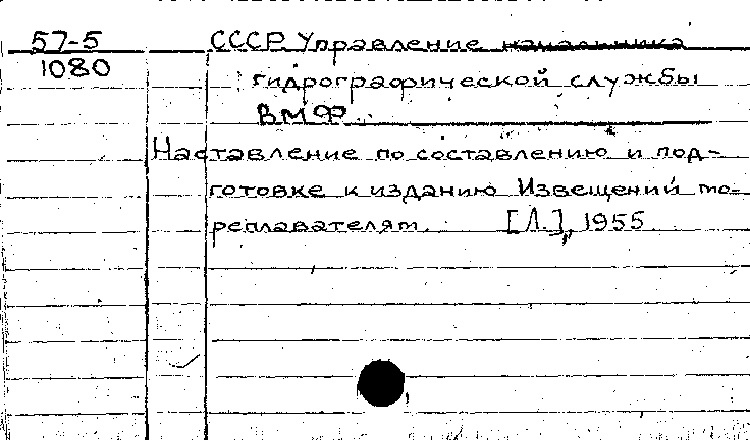 57-5 СССР Управление начальника
1080 гидрографической службы
ВМФ.
Наставление по составлению и под-
готовке к изданию Извещений мо-
реплавателям. [Л.], 1955